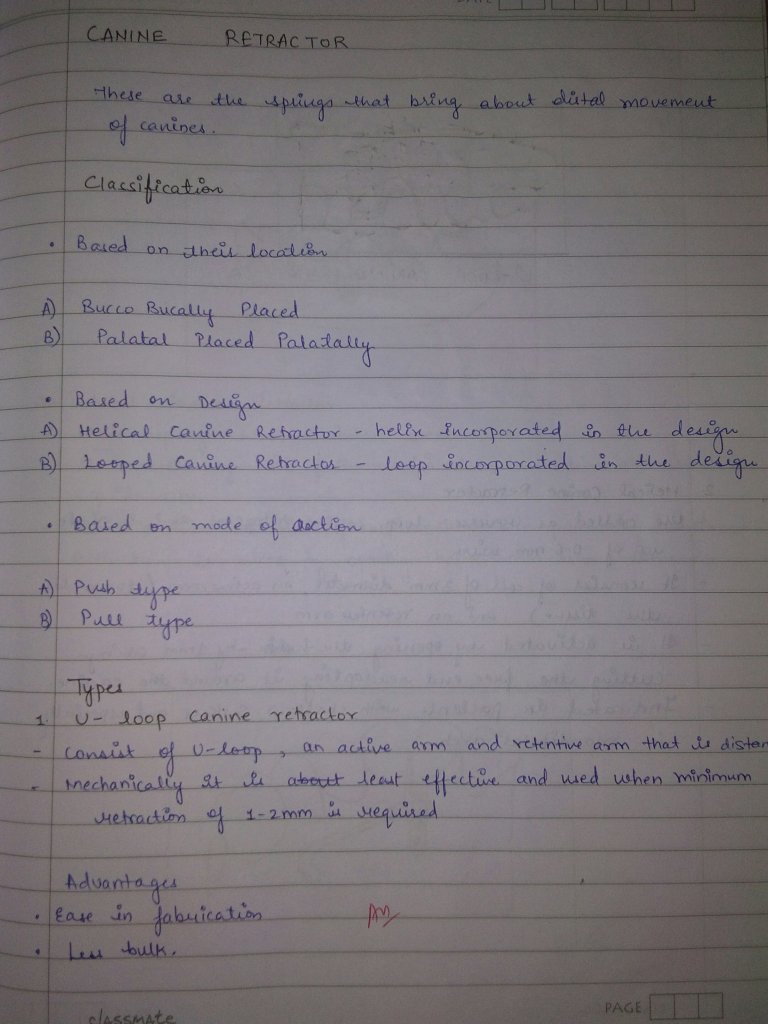 CANINE RETRACTOR
These are the springs that bring about distal movement
of canines.
Classification
• Based on their location
A) Bucco Bucally Placed
B) Palatal Placed Palatally
• Based on Design
A) Helical Canine Retractor - helix incorporated in the design
B) Looped Canine Retractor - loop incorporated in the design
• Based on mode of action
A) Push type
B) Pull type
Types
1. U- loop canine retractor
- consist of U-loop, an active arm and retentive arm that is distan
- Mechanically it is about least effective and used when minimum
retraction of 1-2mm is required
Advantages
• Ease in fabrication
• Less bulk.
classmate
PAGE